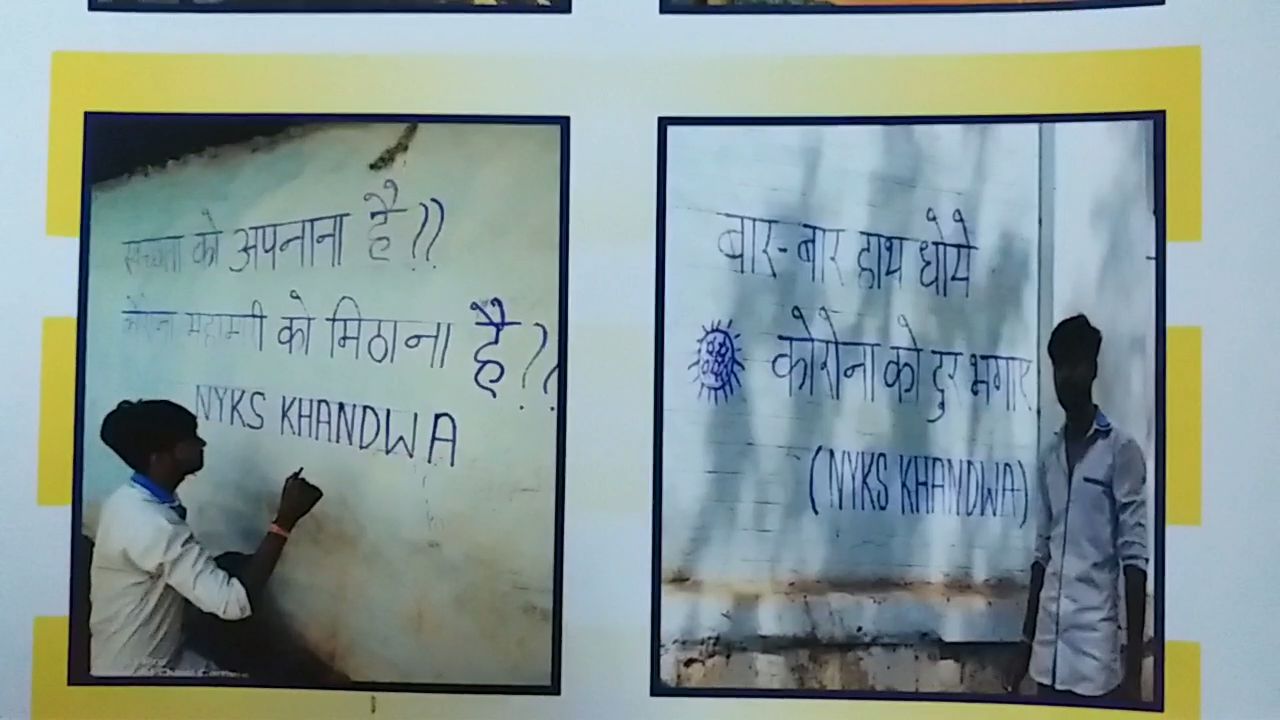 स्वच्छता को अपनाना है??
कोरोना महामारी को मिठाना है??
NYKS KHANDWA
बार-बार हाथ धोये
कोरोना को दुर भगाए
(NYKS KHANDWA)